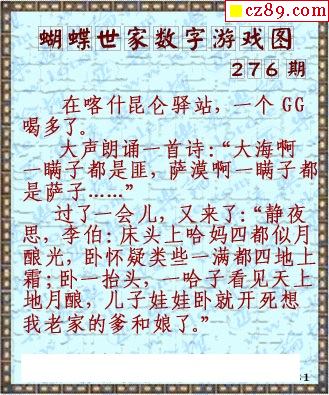 cz89.com
蝴蝶世家数字游戏图
276 期
在喀什昆仑驿站，一个 GG
喝多了。
大声朗诵一首诗：“大海啊
一瞒子都是匪，萨漠啊一瞒子都
是萨子……”
过了一会儿，又来了：“静夜
思，李伯：床头上哈妈四都似月
酿光，卧怀疑类些一满都四地上
霜；卧一抬头，一哈子看见天上
地月酿，儿子娃娃卧就开死想
我老家的爹和娘了。”